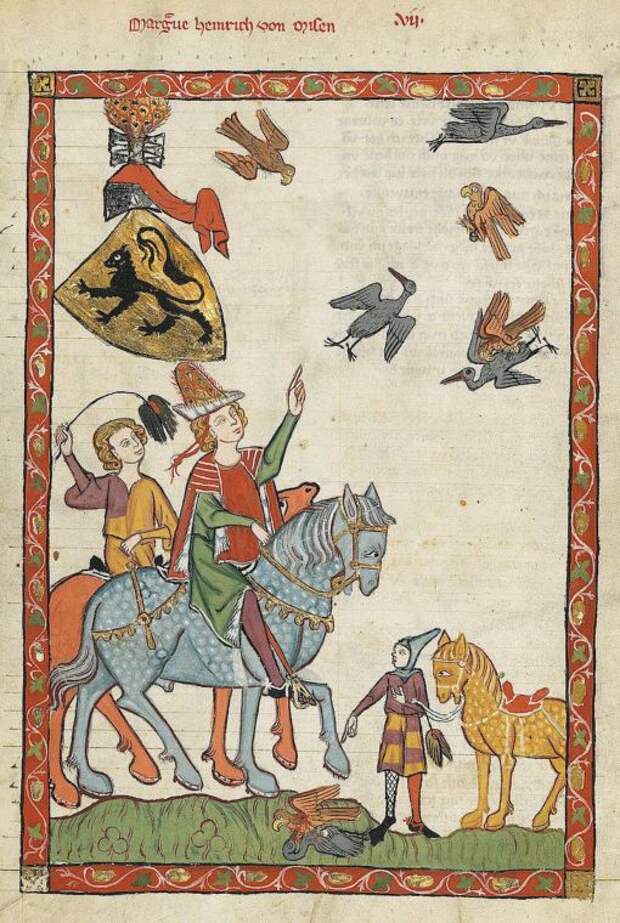 Margͣue Heinrich von Misen
.vij.